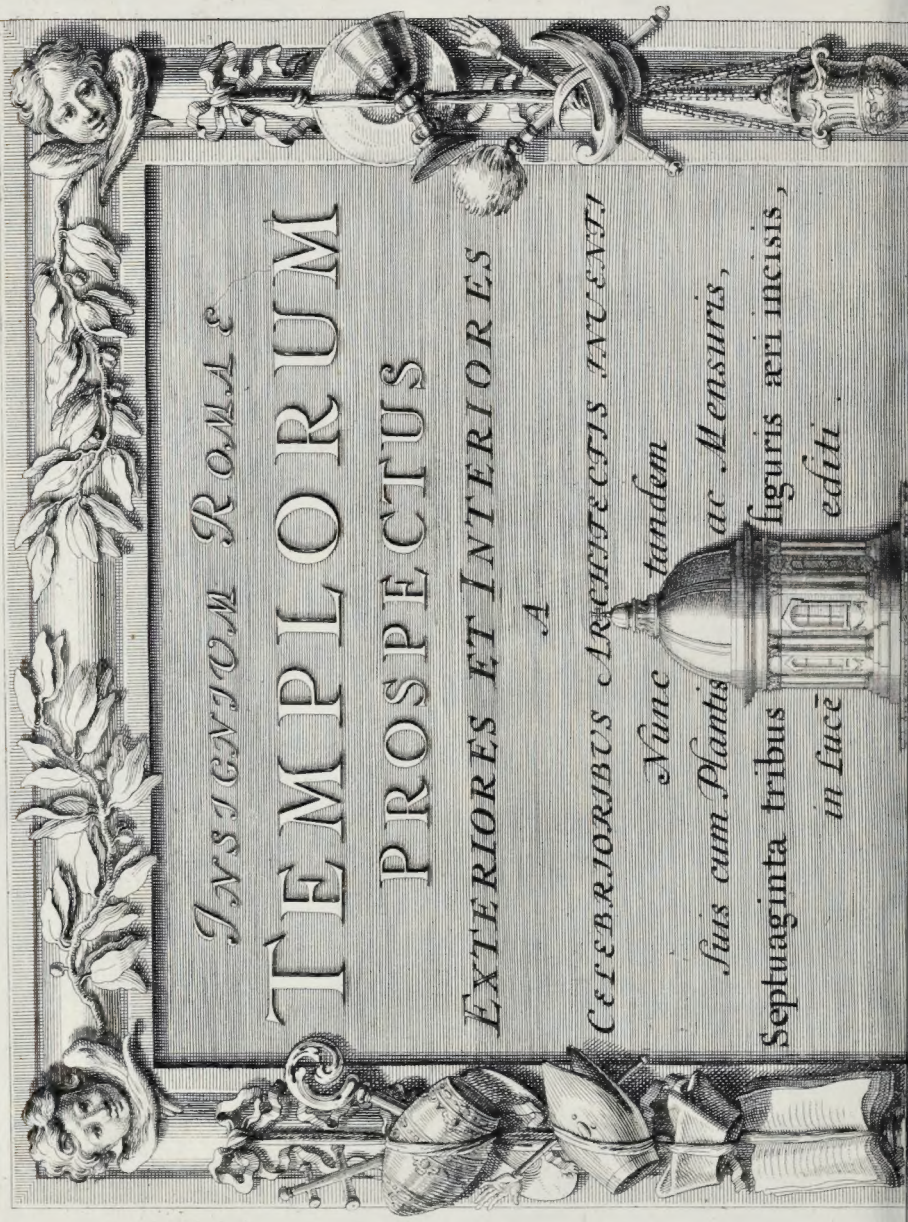 INSIGNIUM ROMÆ
TEMPLORUM
PROSPECTUS
EXTERIORES ET INTERIORES
A
CELEBRIORIBUS ARCHITECTIS INVENTI
Nunc tandem
suis cum Plantis ac Mensuris,
Septuaginta tribus figuris æri incisis,
in Lucē editi.